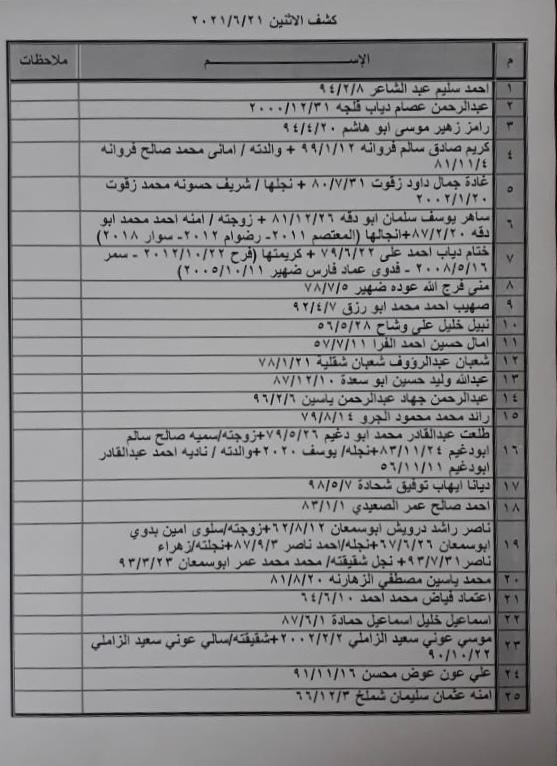 كشف الاثنين ٢٠٢١/٦/٢١
م الإســـــــــم ملاحظات
١ احمد سليم عبد الشاعر ٩٤/٢/٨
٢ عبدالرحمن عصام دياب قلجه ٢٠٠٠/١٢/٣١
٣ رامز زهير موسى ابو هاشم ٩٤/٤/٢٠
٤ كريم صادق سالم فروانه ٩٩/١/١٢ + والدته / امانى محمد صالح فروانه
٨١/١١/٤
٥ غادة جمال داود زقوت ٨٠/٧/٣١ + نجلها / شريف حسونه محمد زقوت
٢٠٠٢/١/٢٠
٦ ساهر يوسف سلمان ابو دقه ٨١/١٢/٢٦ + زوجته / امنه احمد محمد ابو
دقه ٨٧/٢/٢٠+انجالها (المعتصم ٢٠١١- رضوام ٢٠١٢- سوار ٢٠١٨)
٧ ختام دياب احمد على ٧٩/٦/٢٢ + كريمتها (فرح ٢٠١٢/١٠/٢٢ - سمر
٢٠٠٨/٥/١٦ - فدوى عماد فارس ضهير ٢٠٠٥/١٠/١١)
٨ منى فرج الله عوده ضهير ٧٨/٧/٥
٩ صهيب احمد محمد ابو رزق ٩٢/٤/٧
١٠ نبيل خليل على وشاح ٥٦/٥/٢٨
١١ امال حسين احمد الفرا ٥٧/٧/١١
١٢ شعبان عبدالرؤوف شعبان شقلية ٧٨/١/٢١
١٣ عبدالله وليد حسين ابو سعدة ٨٧/١٢/١٠
١٤ عبدالرحمن جهاد عبدالرحمن ياسين ٩٦/٢/٦
١٥ رائد محمد محمود الجرو ٧٩/٨/١٤
١٦ طلعت عبدالقادر محمد ابو دغيم ٧٩/٥/٢٦+زوجته/سميه صالح سالم
ابودغيم ٨٣/١١/٢٤+نجله/ يوسف ٢٠٢٠+والدته / ناديه احمد عبدالقادر
ابودغيم ٥٦/١١/١١
١٧ ديانا ايهاب توفيق شحادة ٩٨/٥/٧
١٨ احمد صالح عمر الصعيدي ٨٣/١/١
١٩ ناصر راشد درويش ابوسمعان ٦٢/٨/١٢+زوجته/سلوى امين بدوي
ابوسمعان ٦٧/٦/٢٦+نجله/احمد ناصر ٨٧/٩/٣+نجلته/زهراء
ناصر٩٣/٧/٣١+ نجل شقيقته/ محمد محمد عمر ابوسمعان ٩٣/٣/٢٣
٢٠ محمد ياسين مصطفي الزهارنه ٨١/٨/٢٠
٢١ اعتماد فياض محمد احمد ٦٤/٦/١٠
٢٢ اسماعيل خليل اسماعيل حمادة ٨٧/٦/١
٢٣ موسي عوني سعيد الزاملي ٢٠٠٢/٢/٢+شقيقته/سالي عوني سعيد الزاملي
٩٠/١٠/٢٢
٢٤ علي عون عوض محسن ٩١/١١/١٦
٢٥ امنه عثمان سليمان شملخ ٦٦/١٢/٣